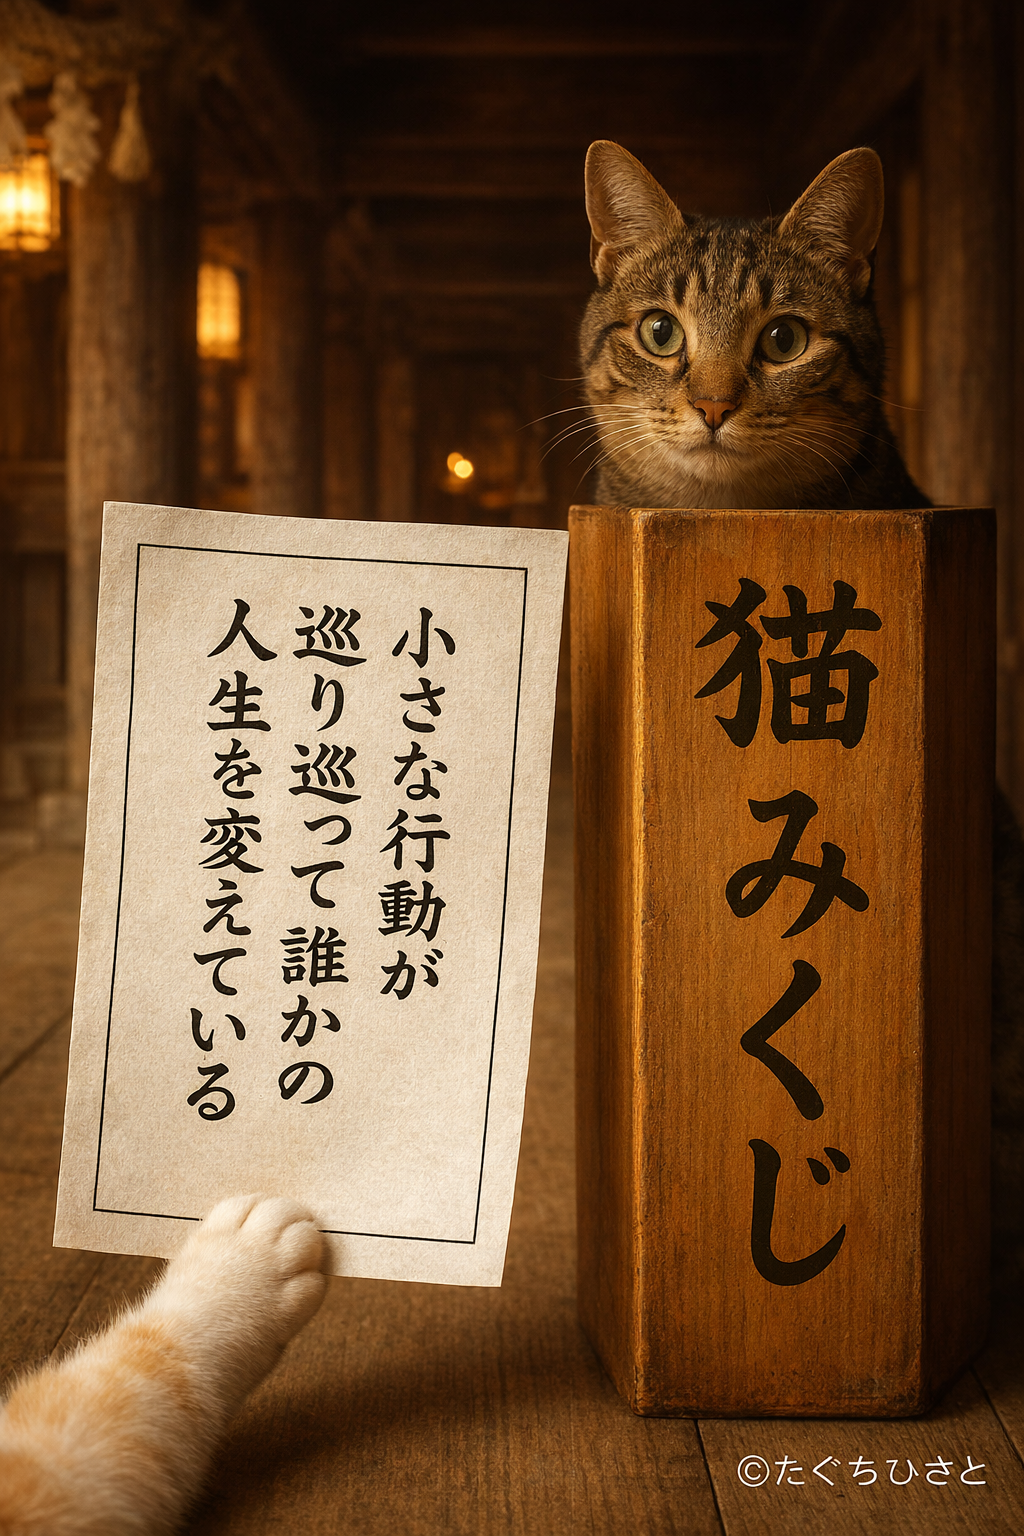 小さな行動が
巡り巡って誰かの
人生を変えている
猫みくじ
©たぐちひさと